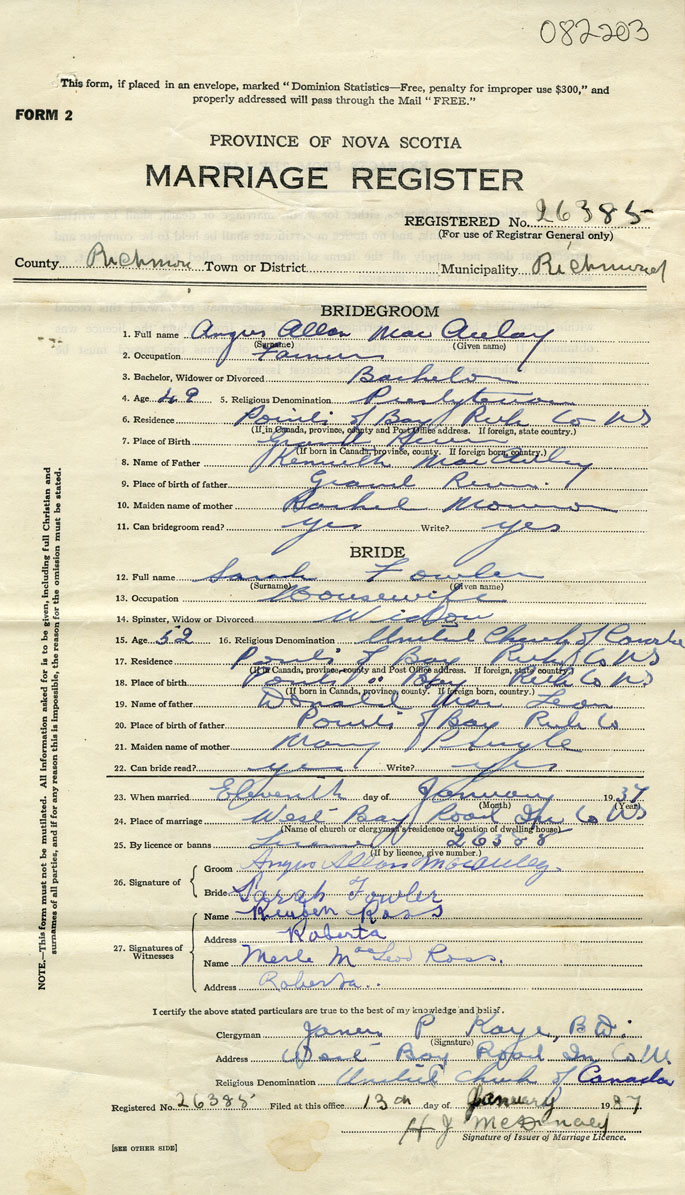 082203
This form, if placed in an envelope, marked "Dominion Statistics—Free, penalty for improper use $300," and
properly addressed will pass through the Mail "FREE."
FORM 2
PROVINCE OF NOVA SCOTIA
MARRIAGE REGISTER
REGISTERED No. 26385
(For use of Registrar General only)
County Richmon Town or District Municipality Richmond
BRIDEGROOM
1. Full name Angus Allan MacAulay
(Surname) (Given name)
2. Occupation Farmer
3. Bachelor, Widower or Divorced Bachelor
4. Age 49 5. Religious Denomination Presbyterian
6. Residence Points of Bay Rich Co NS
(If in Canada, province, county and Post Office address. If foreign, state country.)
7. Place of Birth Grand River
(If born in Canada, province, county. If foreign born, country.)
8. Name of Father Kenneth MacAulay
9. Place of birth of father Grand River
10. Maiden name of mother Rachel
11. Can bridegroom read? yes Write? yes
BRIDE
12. Full name Sarah Fowler
(Surname) (Given name)
13. Occupation Housewife
14. Spinster, Widow or Divorced Widow
15. Age 52 16. Religious Denomination United Church of
17. Residence Points of Bay Rich Co NS
(If in Canada, province, county and Post Office address. If foreign, state country.)
18. Place of birth Points " Bay Rich Co NS
(If born in Canada, province, county. If foreign born, country.)
19. Name of father Donald Mac Lean
20. Place of birth of father Points of Bay Rich Co
21. Maiden name of mother Mary
22. Can bride read? yes Write? yes
23. When married Eleventh day of January 1937
(Month) (Year)
24. Place of marriage West Bay Road Inv Co NS
(Name of church or clergyman's residence or location of dwelling house)
25. By licence or banns License 26385
(If by licence, give number.)
26. Signature of
Groom Angus Allan MacAulay
Bride Sarah Fowler
27. Signatures of Witnesses
Name Reuben Ross
Address Roberta
Name Merle MacLeod Ross.
Address Roberta..
I certify the above stated particulars are true to the best of my knowledge and belief.
Clergyman James P Kaye, B.D.
(Signature)
Address West Bay Road Inv Co
Religious Denomination United Church of Canada
Registered No. 26385 Filed at this office 13th day of January 1937
H J
Signature of Issuer of Marriage Licence.
[SEE OTHER SIDE]
NOTE.—This form must not be mutilated. All information asked for is to be given, including full Christian and
surnames of all parties, and if for any reason this is impossible, the reason for the omission must be stated.